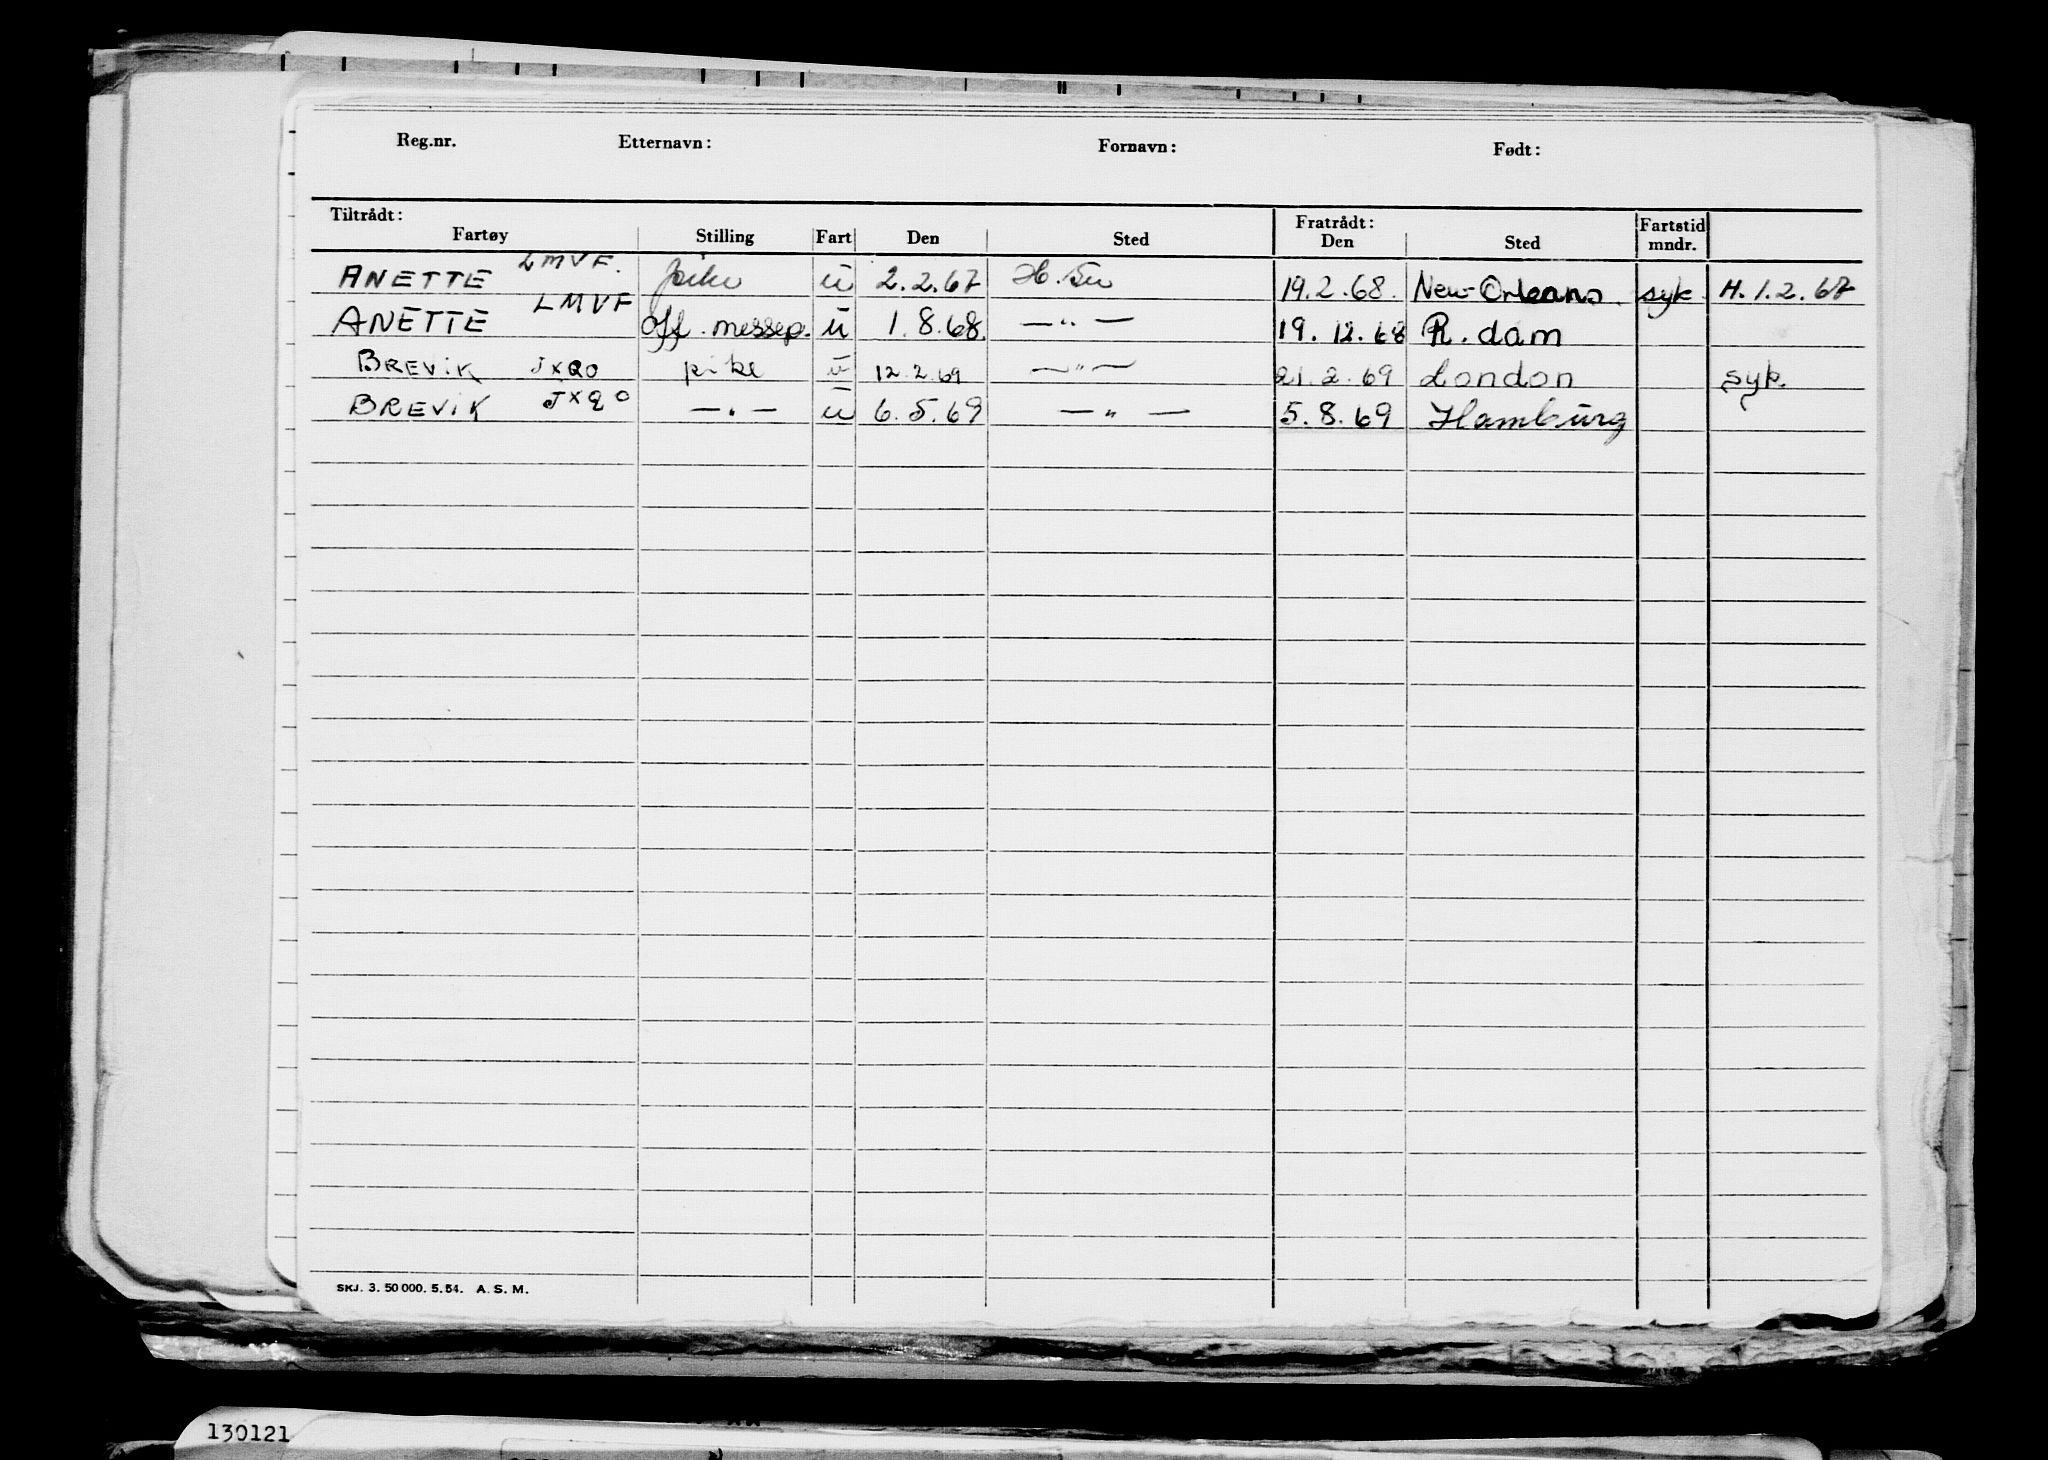 Reg.nr. Etternavn: Fornavn: Født:
Tiltrådt: Fratrådt: Fartstid
Fartøy Stilling Fart Den Sted Den Sted mndr.
ANETTE LMVF. pike u 2.2.67 H. 19.2.68. New-Orleans. syk. H.1.2.67
ANETTE LMVF off. messep. u 1.8.68. —"— 19.12.68 R.dam
BREVIK JXQO pike u 12.2.69 —"— 21.2.69 London syk.
BREVIK JXQO —"— u 6.5.69 —"— 5.8.69 Hamburg
SKJ. 3. 50 000. 5. 54. A. S. M.
130121